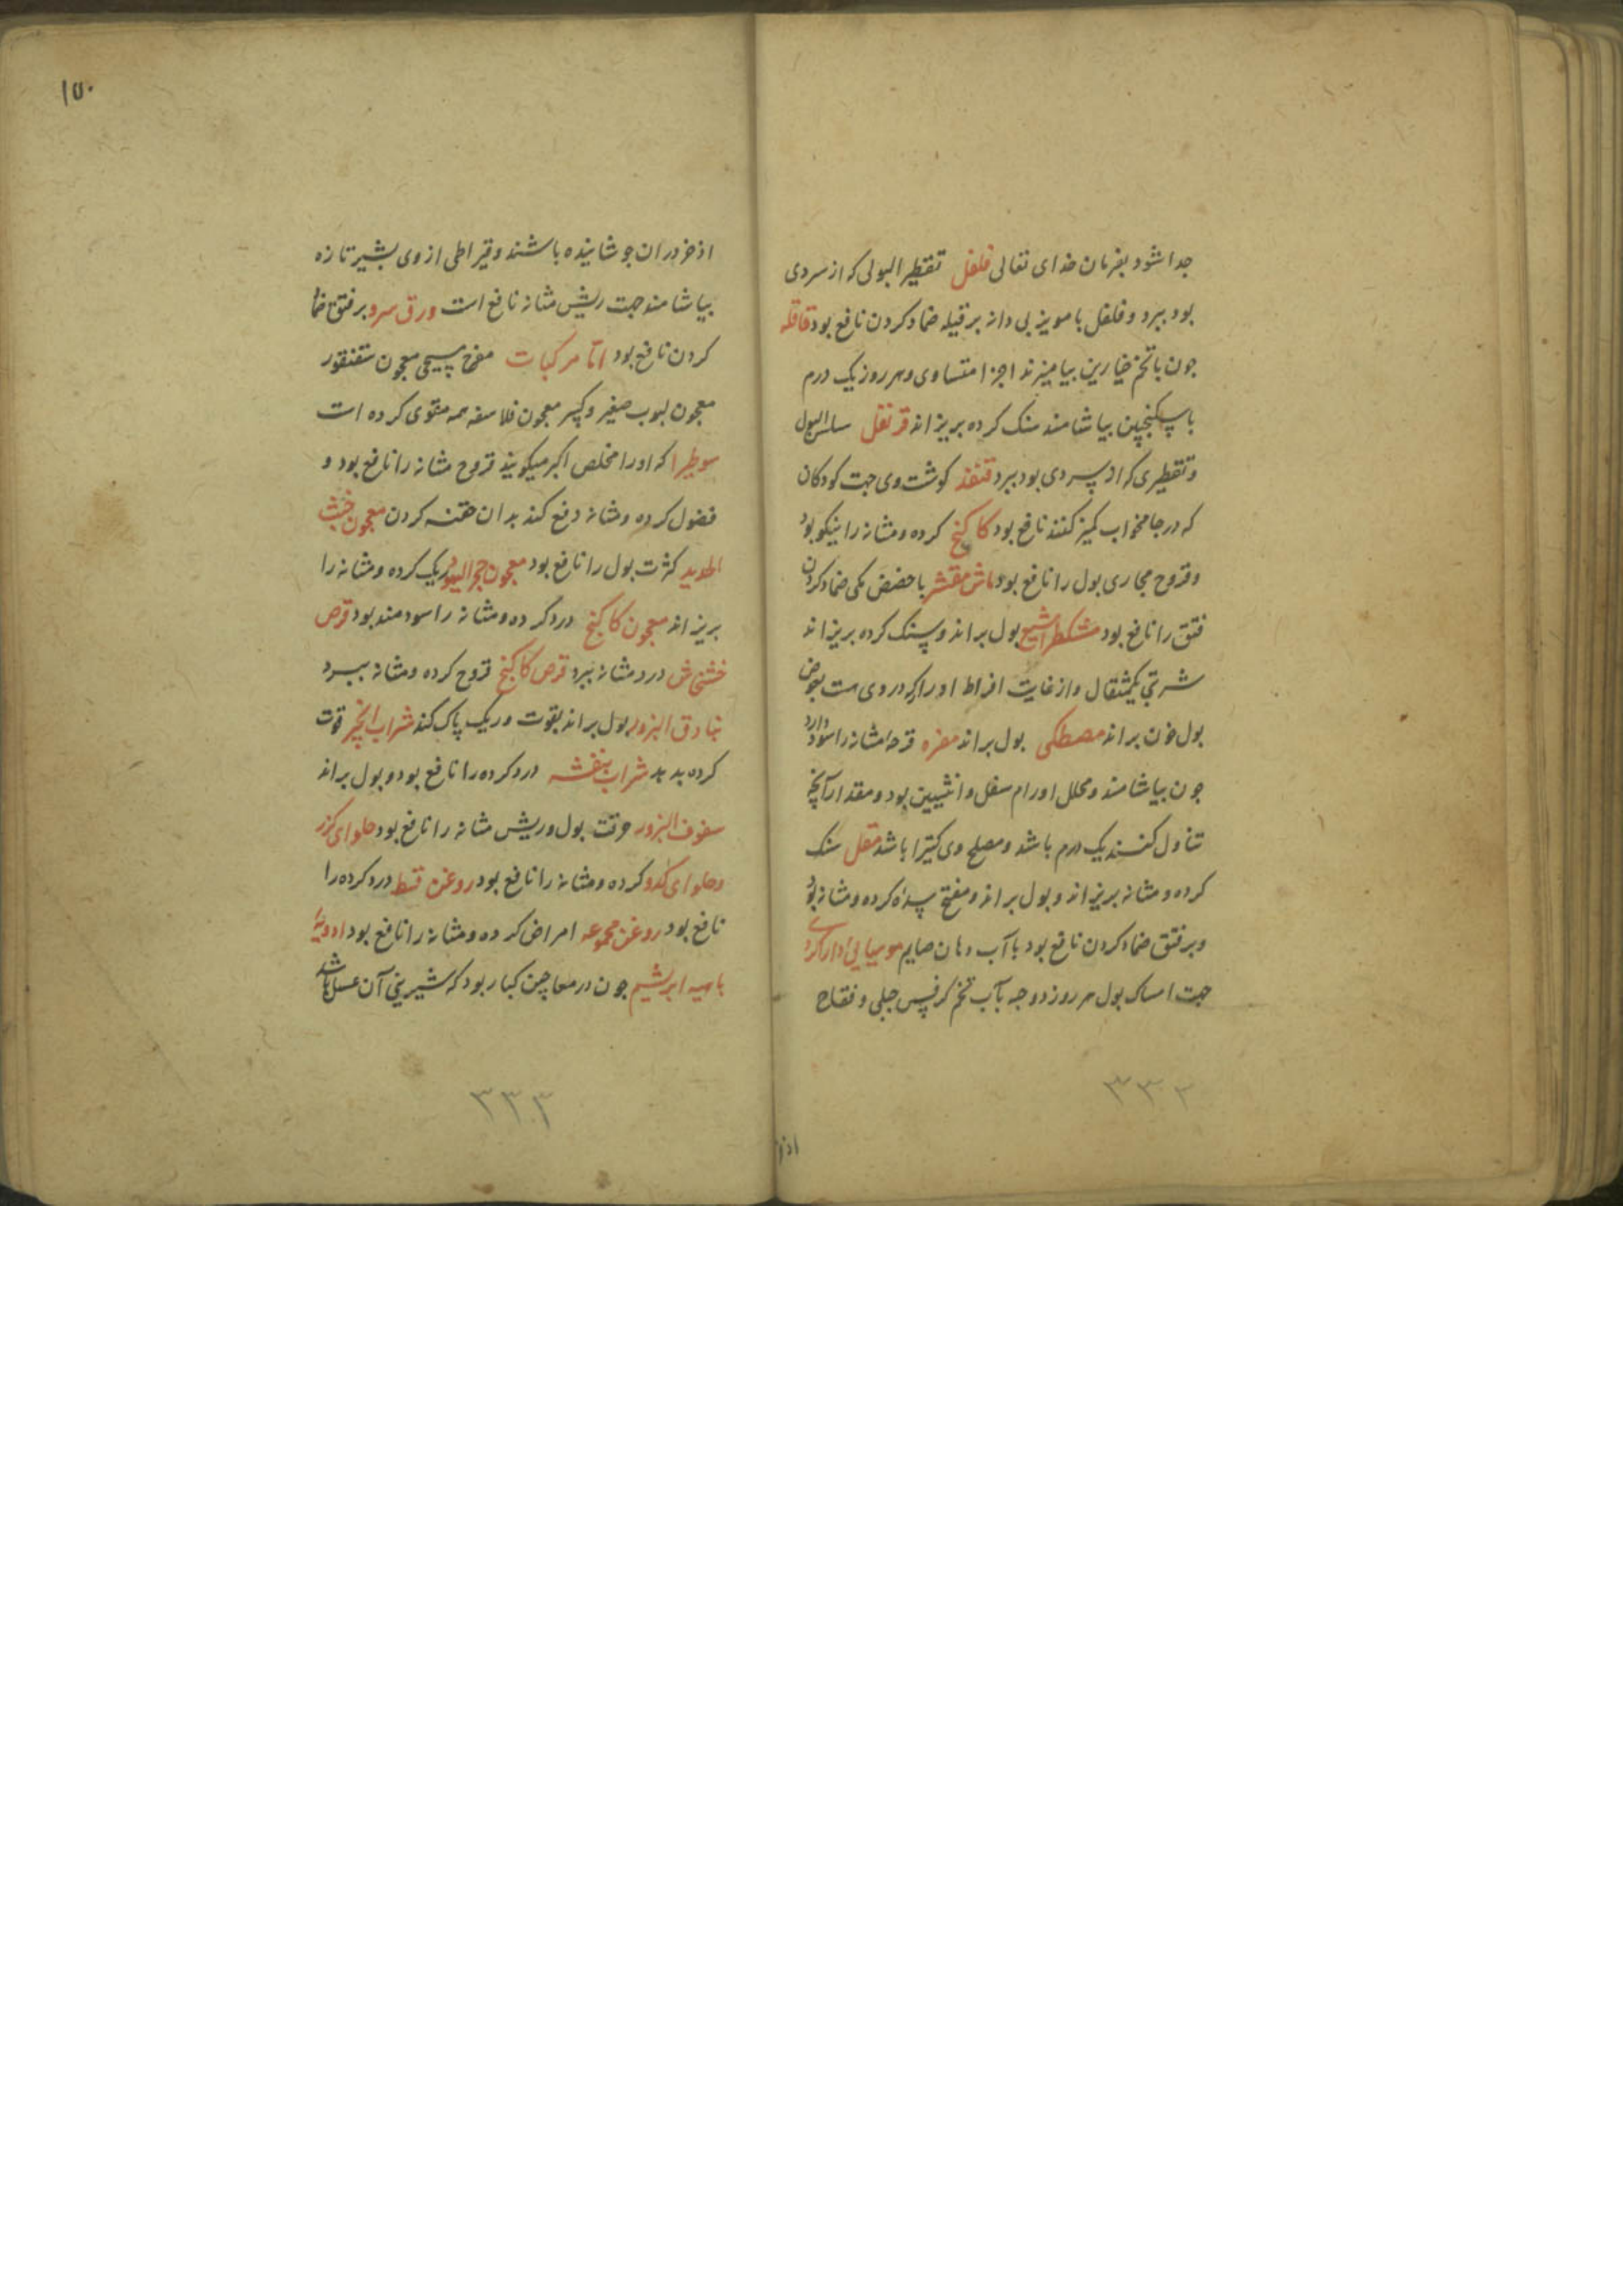 جدا شود بفرمان خدای تعالی فلفل تقطیر البولی که از سردی
بود ببرد و فلفل با مویز بی دانه بر قیله ضماد کردن نافع بود قاقله
جون با تخم خیارین بیامیزند اجزا متساوی و هر روز یک درم
با سکنجبین بیاشامند سنک کرده بریزاند قرنفل سلس البول
و تقطیری که از سردی بود ببرد قنفذ کوشت وی جهت کودکان
که در جامخواب کمیز کنند نافع بود کاکنج کرده و مثانه را نیکو بود
و قروح مجاری بول را نافع بود ماش مقشر با حضض مکی ضماد کردن
فتق را نافع بود مشکطرامشیع بول براند و سنک کرده بریزاند
شربتی یکمثقال و از غایت افراط ادرا که در وی هست بعوض
بول خون براند مصطکی بول براند مغره قرحه مثانه را سود دارد
جون بیاشامند و محلل اورام سفل و انثیین بود و مقدار آنچه
تناول کنند یک درم باشد و مصلح وی کتیرا باشد مقل سنک
کرده و مثانه بریزاند و بول براند و مفتح سده کرده و مثانه بود
و بر فتق ضماد کردن نافع بود با آب دهان صایم مومیایی
جهت امساک بول هر روز دو حبه بآب تخم کرفس جبلی و فقاح
۳۳۲
اذخر
۱۵۰
اذخر در ان جوشانیده باشند و قیراطی از وی بشیر تازه
بیاشامند جهت ریش مثانه نافع است ورق سرو بر فتق ضماد
کردن نافع بود اما مرکبات مفرح مسیحی معجون سقنقور
معجون لبوب صغیر و کبیر معجون فلاسفه همه مقوی کرده است
سوطیرا که او را مخلص اکبر میکویند قروح مثانه را نافع بود و
فضول کرده و مثانه دفع کند بدان حقنه کردن معجون خبث
الحدید کثرت بول را نافع بود معجون حجر الیهود ریک کرده و مثانه را
بریزاند معجون کاکنج درد کرده و مثانه را سودمند بود قرص
خشخاش درد مثانه ببرد قرص کاکنج قروح کرده و مثانه ببرد
بنادق البزور بول براند بقوت و ریک پاک کند شراب انجیر قوت
کرده بدهد شراب بنفشه درد کرده را نافع بود و بول براند
سفوف البزور حرقت بول و ریش مثانه را نافع بود حلوای کزر
و حلوای کدو کرده و مثانه را نافع بود روغن قسط درد کرده را
نافع بود روغن مجموعه امراض کرده و مثانه را نافع بود ادویهٔ
باهیه ابریشیم جون در معاجین کبار بود که شیرینی آن عسل باشد
۳۳۳